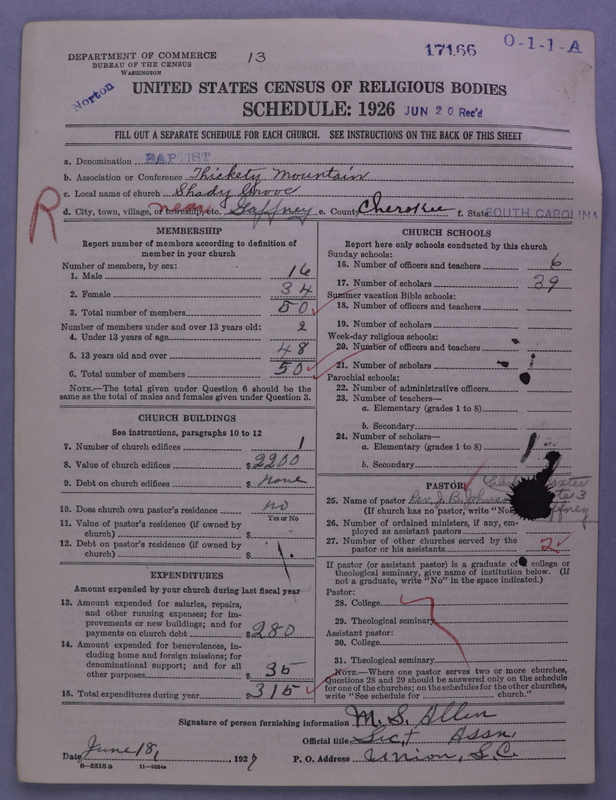 DEPARTMENT OF COMMERCE
BUREAU OF THE CENSUS
WASHINGTON
13
17166
O-1-1-A
Norton
UNITED STATES CENSUS OF RELIGIOUS BODIES
SCHEDULE: 1926 JUN 20 Rec'd
FILL OUT A SEPARATE SCHEDULE FOR EACH CHURCH. SEE INSTRUCTIONS ON THE BACK OF THIS SHEET
a. Denomination BAPTIST
b. Association or Conference Thickety Mountain
c. Local name of church Shady Grove
R
d. City, town, village, or township, etc. near Gaffney e. County Cherokee f. State SOUTH CAROLINA
MEMBERSHIP
Report number of members according to definition of
member in your church
Number of members, by sex:
1. Male 16
2. Female 34
3. Total number of members 50
Number of members under and over 13 years old:
4. Under 13 years of age 2
5. 13 years old and over 48
6. Total number of members 50
NOTE.—The total given under Question 6 should be the
same as the total of males and females given under Question 3.
CHURCH BUILDINGS
See instructions, paragraphs 10 to 12
7. Number of church edifices 1
8. Value of church edifices $2200
9. Debt on church edifices $ None
10. Does church own pastor's residence? no
Yes or No
11. Value of pastor's residence (if owned by
church) $
12. Debt on pastor's residence (if owned by
church) $
EXPENDITURES
Amount expended by your church during last fiscal year
13. Amount expended for salaries, repairs,
and other running expenses; for im-
provements or new buildings; and for
payments on church debt $280
14. Amount expended for benevolences, in-
cluding home and foreign missions; for
denominational support; and for all
other purposes $ 35
15. Total expenditures during year $315
CHURCH SCHOOLS
Report here only schools conducted by this church
Sunday schools:
16. Number of officers and teachers 6
17. Number of scholars 39
Summer vacation Bible schools:
18. Number of officers and teachers
19. Number of scholars
Week-day religious schools:
20. Number of officers and teachers
21. Number of scholars
Parochial schools:
22. Number of administrative officers
23. Number of teachers—
a. Elementary (grades 1 to 8)
b. Secondary
24. Number of scholars—
a. Elementary (grades 1 to 8)
b. Secondary
PASTOR
25. Name of pastor Rev. J. B.
(If church has no pastor, write "No
3
Gaffney
26. Number of ordained ministers, if any, em-
ployed as assistant pastors
27. Number of other churches served by the
pastor or his assistants 2
If pastor (or assistant pastor) is a graduate of a college or
theological seminary, give name of institution below. (If
not a graduate, write "No" in the space indicated.)
Pastor:
28. College
29. Theological seminary
Assistant pastor:
30. College
31. Theological seminary
NOTE.—Where one pastor serves two or more churches,
Questions 28 and 29 should be answered only on the schedule
for one of the churches; on the schedules for the other churches,
write "See schedule for church."
Signature of person furnishing information M. S. Allen
Official title Sect Assn.
Date June 18, 1927 P. O. Address Union, S. C.
8-5518a